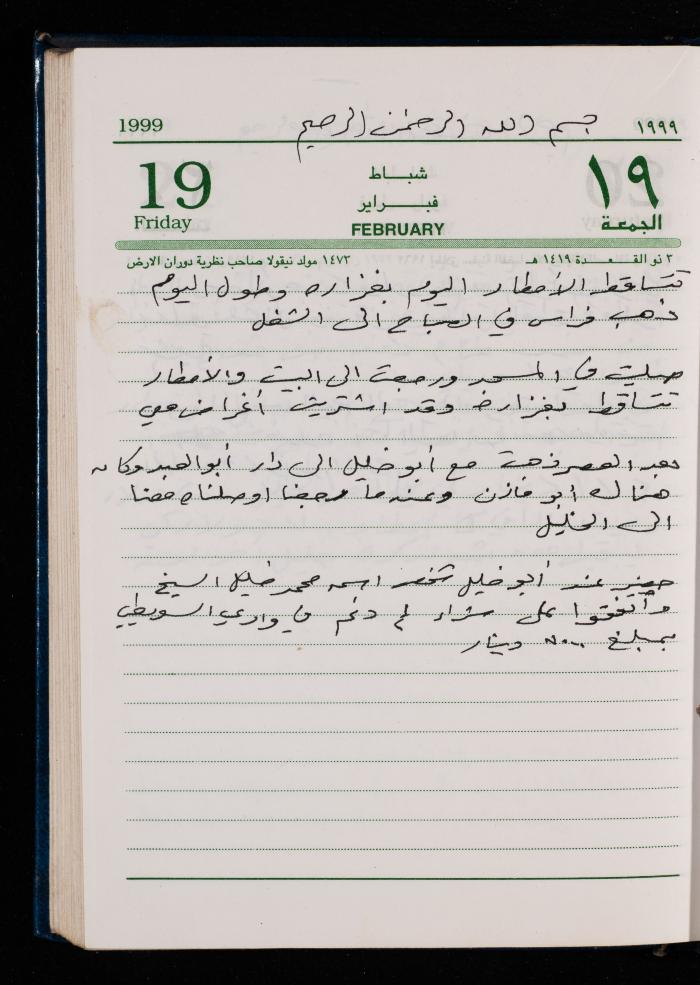 1999 بسم الله الرحمن الرحيم ١٩٩٩
19 شباط ١٩
Friday فبراير الجمعة
FEBRUARY
١٤٧٣ مولد نيقولا صاحب نظرية دوران الارض ٣ ذو القعدة ١٤١٩ هـ
تتساقط الأمطار اليوم بغزاره وطول اليوم
ذهب فراس في الصباح الى الشغل
صليت في المسجد ورجعت الى البيت والأمطار
تتساقط بغزاره وقد اشتريت أغراض معي
بعد العصر ذهبت مع أبو خليل الى دار أبو العبد وكان
هناك أبو مازن وعندما رجعنا اوصلناه معنا
الى الخليل
حضر عند أبو خليل شخص اسمه محمد خليل الشيخ
وأتفقوا على شراء دنم في وادي السويطي
بمبلغ دينار